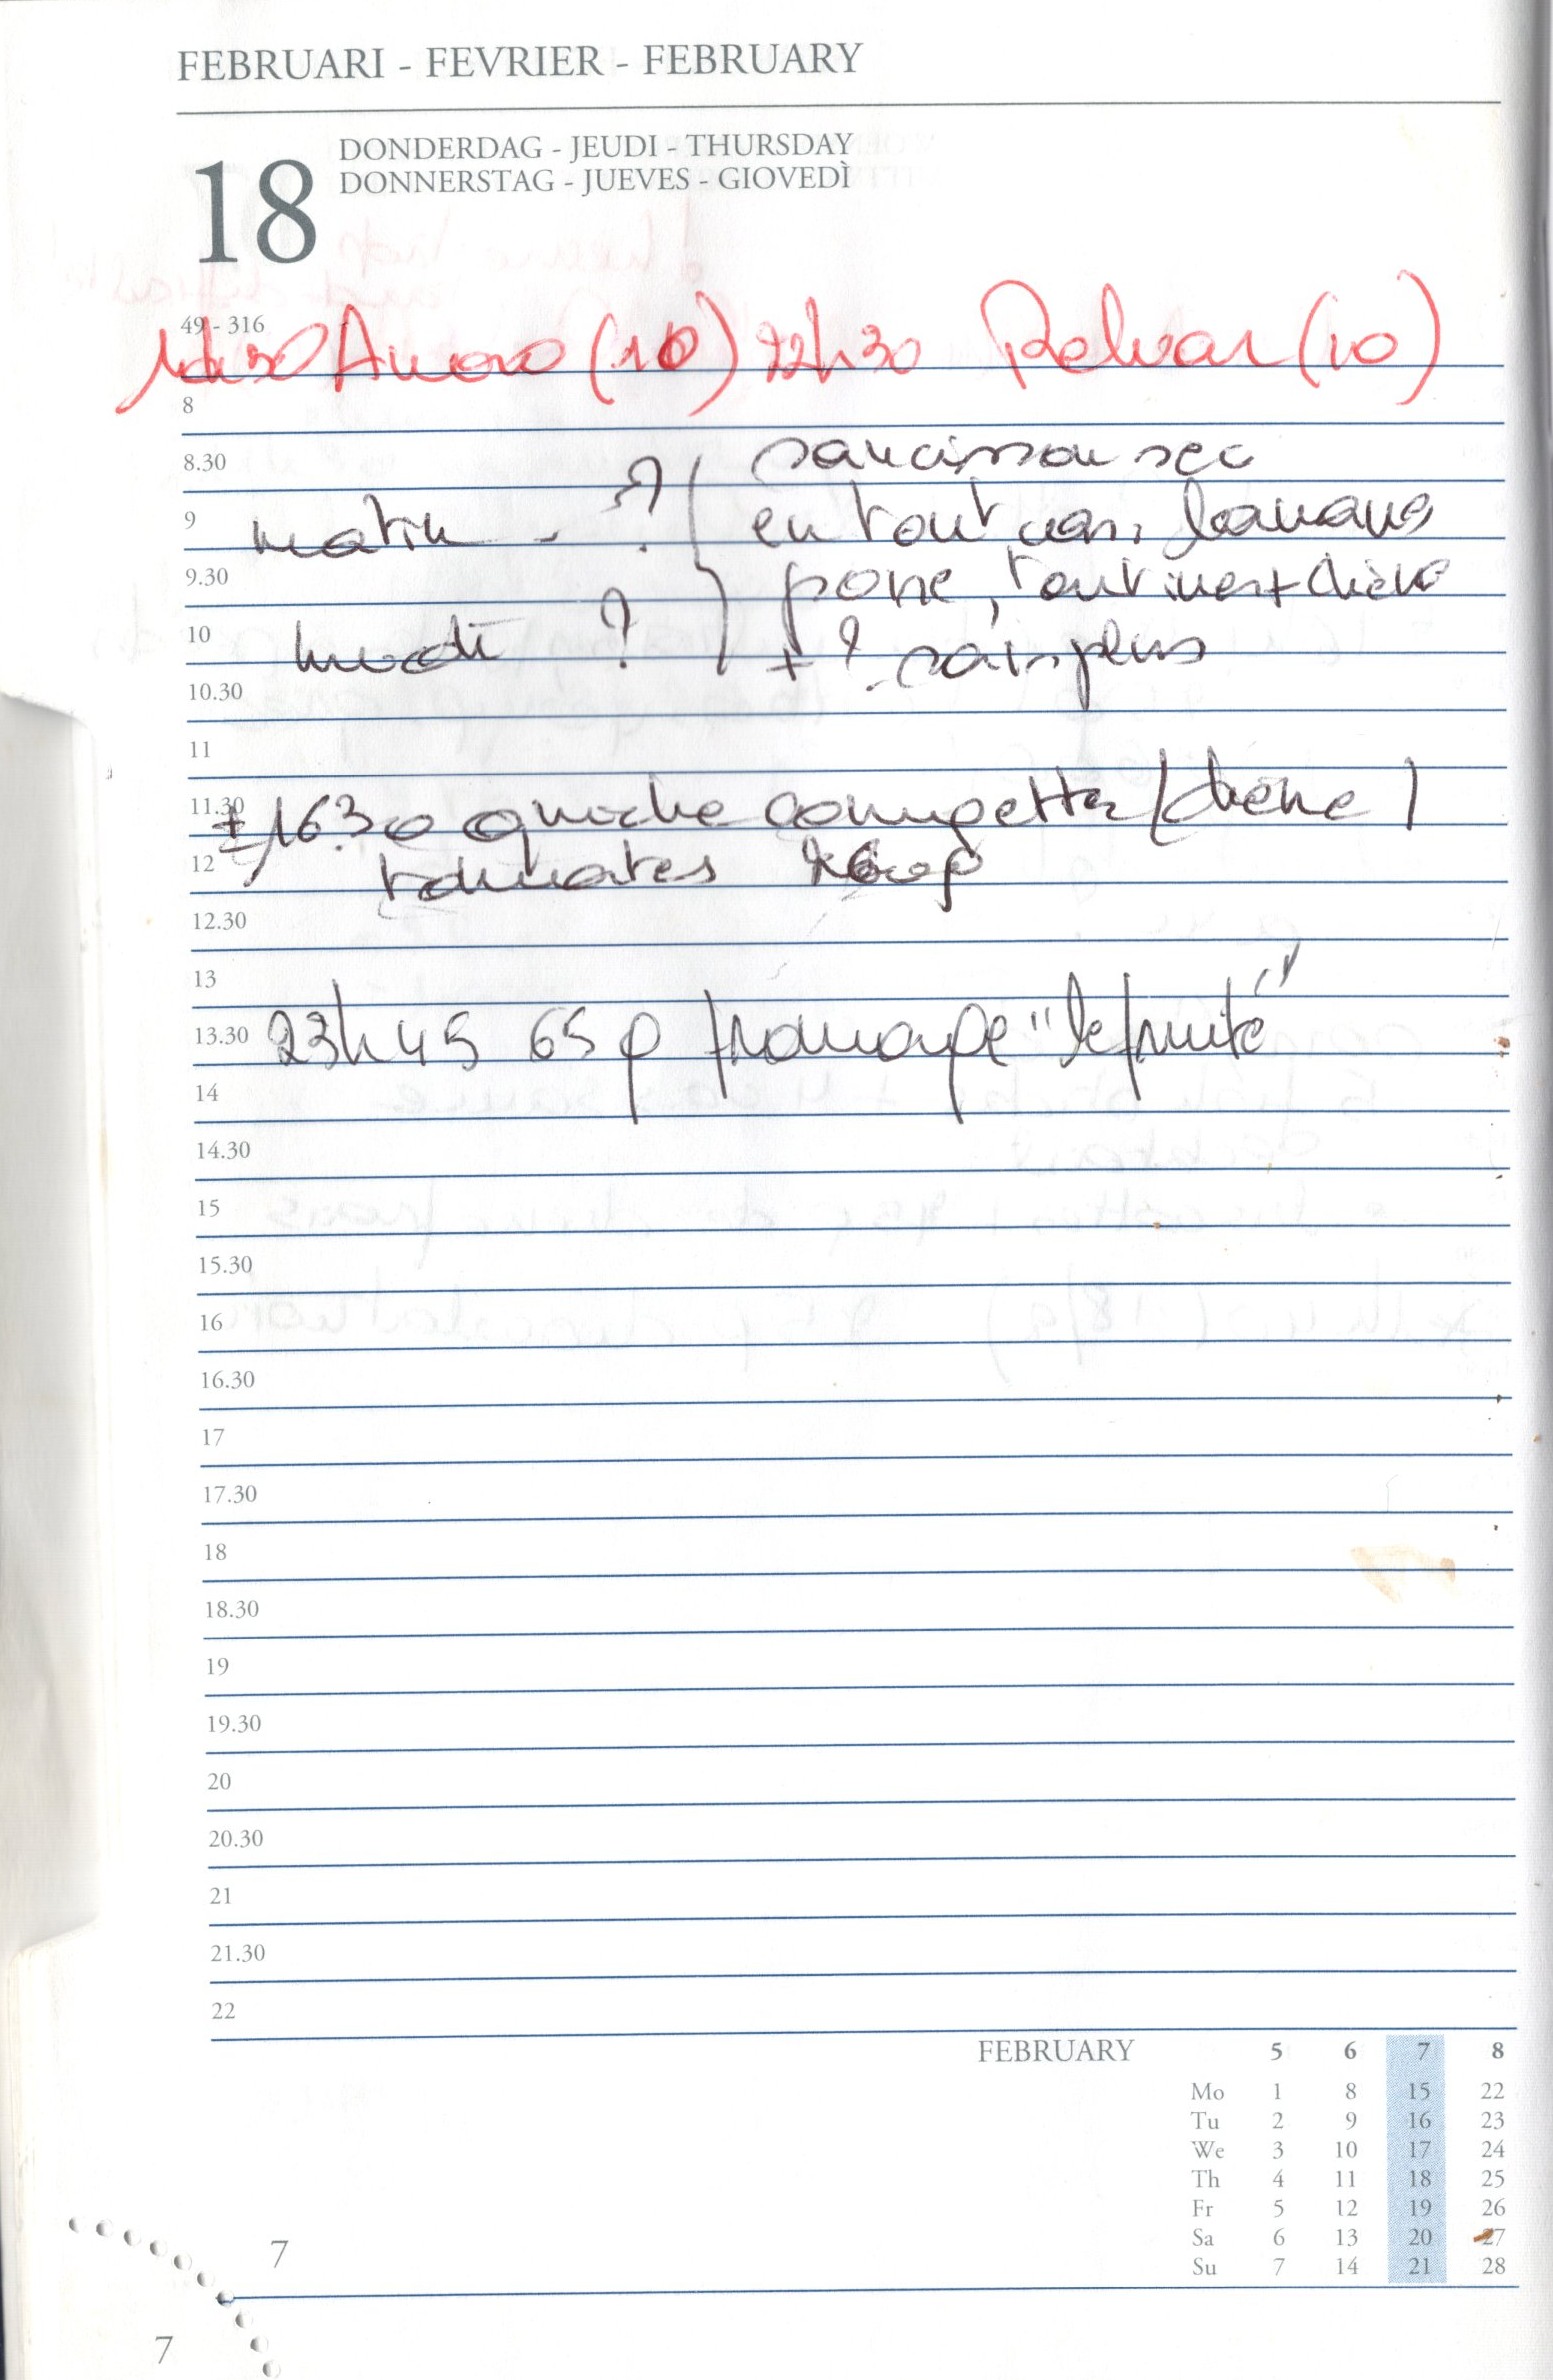 FEBRUARI - FEVRIER - FEBRUARY
18
DONDERDAG - JEUDI - THURSDAY
DONNERSTAG - JUEVES - GIOVEDÌ
49 - 316
(10) 22h30 (10)
8
8.30 saucisson sec
9 matin - ? en tout cas, banane
9.30 poire, chèvre
10 midi ? + ? sais plus
10.30
11
11.30 ± 1630 quiche courgettes / chèvre /
12 tomates
12.30
13
13.30 23h45 65 g fromage "le fruité"
14
14.30
15
15.30
16
16.30
17
17.30
18
18.30
19
19.30
20
20.30
21
21.30
22
FEBRUARY 5 6 7 8
Mo 1 8 15 22
Tu 2 9 16 23
We 3 10 17 24
Th 4 11 18 25
Fr 5 12 19 26
Sa 6 13 20 27
Su 7 14 21 28
7
7